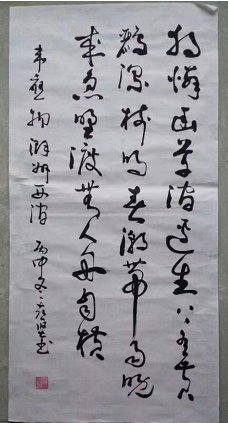 獨憐幽草澗邊生上有黄
鸝深樹鳴春潮帶雨晚
來急野渡無人舟自橫
韋應物滁州西澗 丙申冬 書